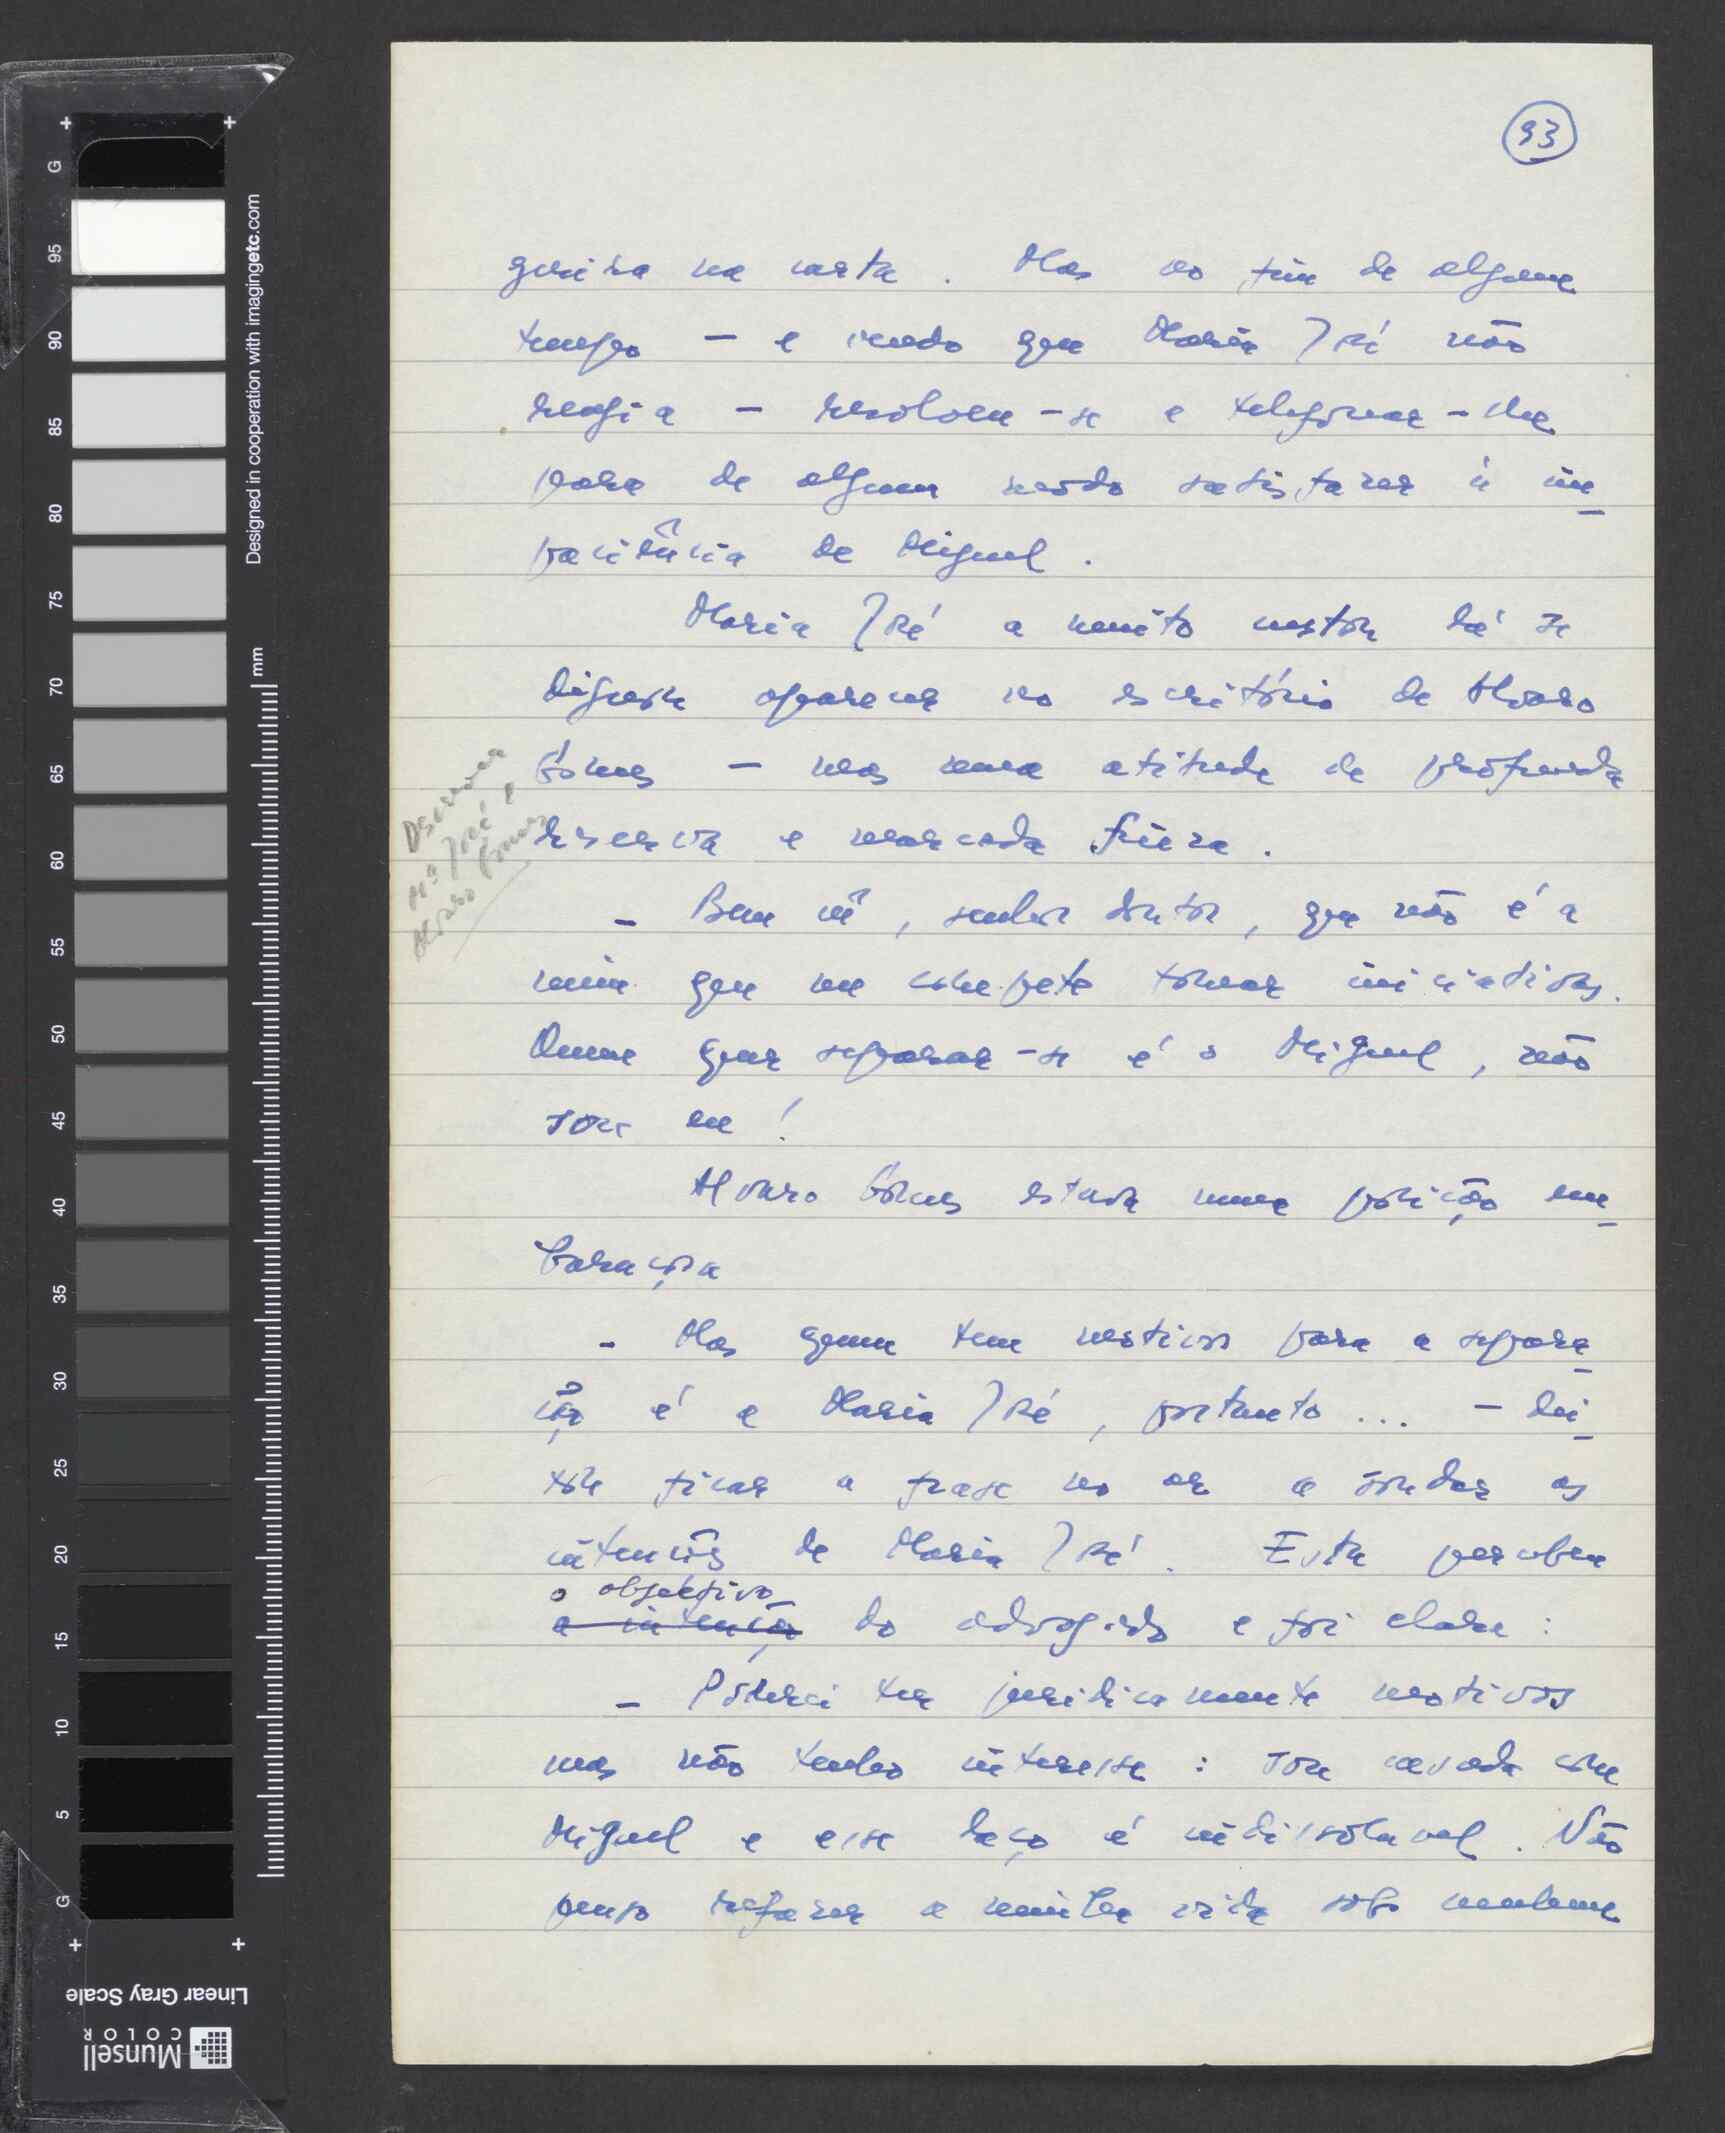 93
guira na carta. Mas ao fim de algum
tempo — e vendo que Maria José não
reagia — resolveu-se a telefonar-lhe
para de algum modo satisfazer a im-
paciência de Miguel.
Maria José a muito custou lá se
dignou aparecer no escritório de Álvaro
Gomes — mas numa atitude de profunda
reserva e marcada frieza.
Descrever
Mª José e
Alvaro Gomes
— Bem vê, senhor doutor, que não é a
mim que me compete tomar iniciativas.
Quem quer separar-se é o Miguel, não
sou eu!
Alvaro Gomes estava numa posição em-
baraçosa
— Mas quem tem motivos para a separa-
ção é a Maria José, portanto... — dei-
xou ficar a frase no ar a sondar as
intenções de Maria José. Esta percebeu
o objectivo
a intenção do advogado e foi clara:
— Poderei ter juridicamente motivos
mas não tenho interesse: sou casada com
Miguel e esse laço é indissoluvel. Não
penso refazer a minha vida sob nenhum
G 95 90 85 80 75 70 65 60 55 50 45 40 35 30 25 20 15 10 5 G
Designed in cooperation with imagingetc.com
mm
Linear Gray Scale
Munsell
COLOR